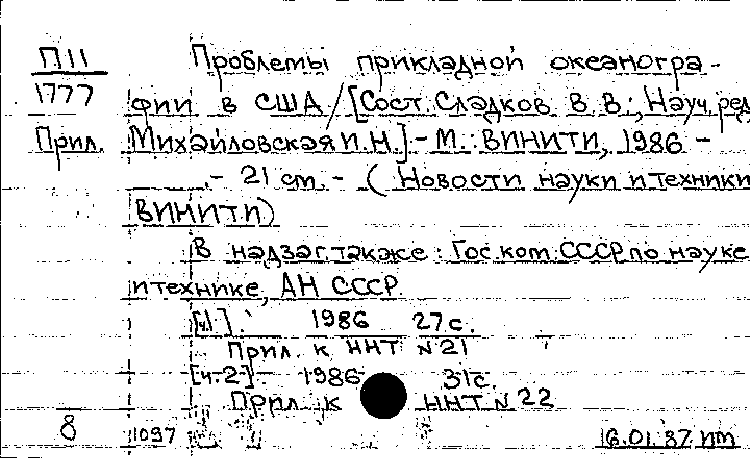 П11 Проблемы прикладной океаногра-
1777 фии в США / [Сост. Сладков В.В.; Науч. ред.
Прил. Михайловская И.Н.] - М.: ВИНИТИ, 1986 -
- 21 cm. - (Новости науки и техники
ВИНИТИ)
В надзаг. также: Гос. ком. СССР по науке
и технике, АН СССР.
[ч.1]. 1986 27 с.
Прил. к ННТ N 21
[ч.2] - 1986 31 с.
Прил. к ННТ N 22
8 1097 16.01.87 пт